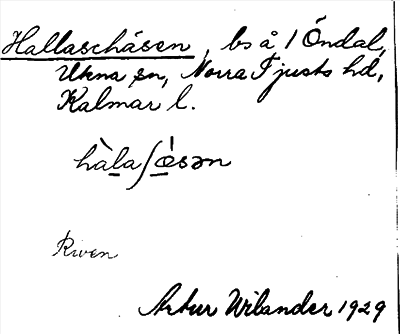 Hallaschåsen, bs å 1 Öndal,
Ukna sn, Norra Tjusts hd,
Kalmar l.
hàla/ǿsən
Riven
Artur Wilander 1929